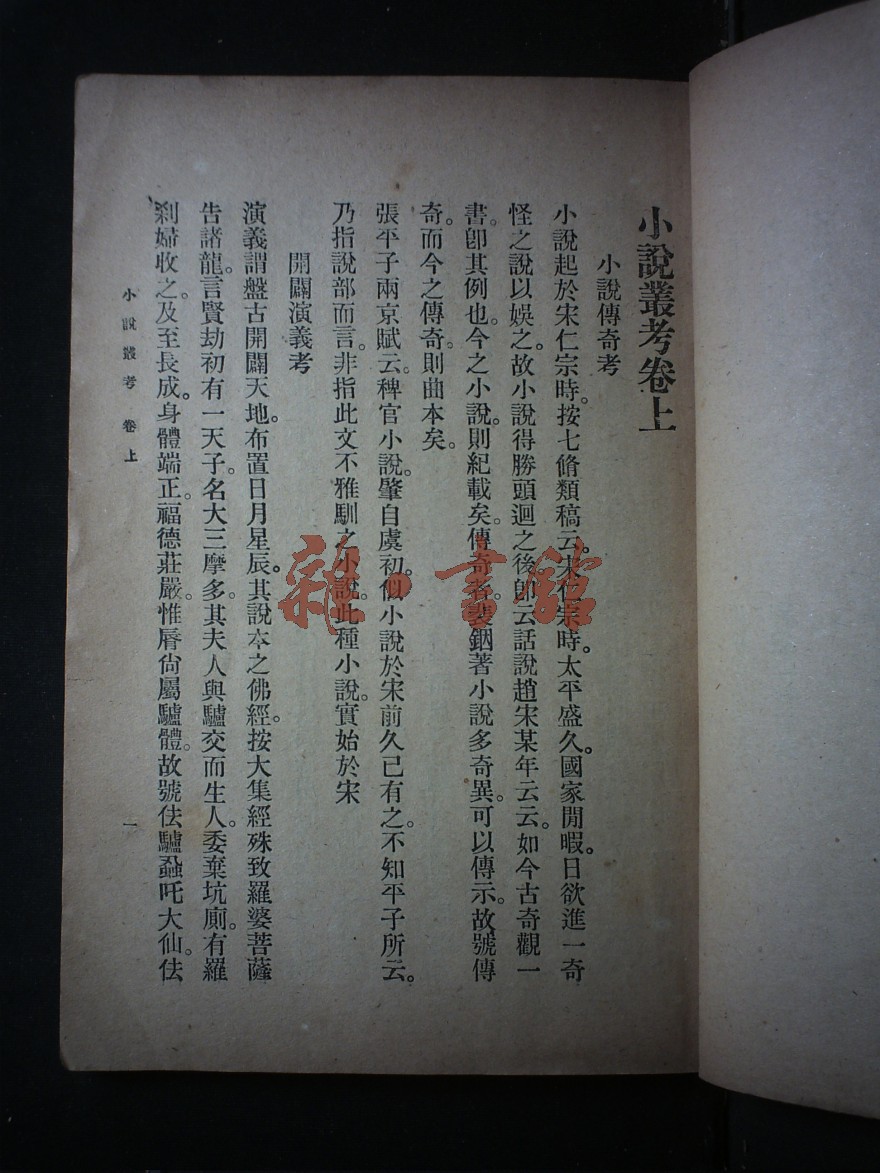 小說叢考卷上
小說傳奇考
小說起於宋仁宗時。按七脩類稿云。宋仁宗時。太平盛久。國家閒暇。日欲進一奇
怪之說以娛之。故小說得勝頭迴之後。卽云話說趙宋某年云云。如今古奇觀一
書。卽其例也。今之小說。則紀載矣。傳奇者。裴鉶著小說多奇異。可以傳示。故號傳
奇。而今之傳奇。則曲本矣。
張平子兩京賦云。稗官小說。肇自虞初。似小說於宋前久已有之。不知平子所云。
乃指說部而言。非指此文不雅馴之小說。此種小說。實始於宋
開闢演義考
演義謂盤古開闢天地。布置日月星辰。其說本之佛經。按大集經殊致羅婆菩薩
告諸龍。言賢劫初有一天子。名大三摩多。其夫人與驢交而生人。委棄坑廁。有羅
剎婦收之。及至長成。身體端正。福德莊嚴。惟脣尙屬驢體。故號佉驢蝨吒大仙。佉
小說叢考 卷上
一
雜·書館